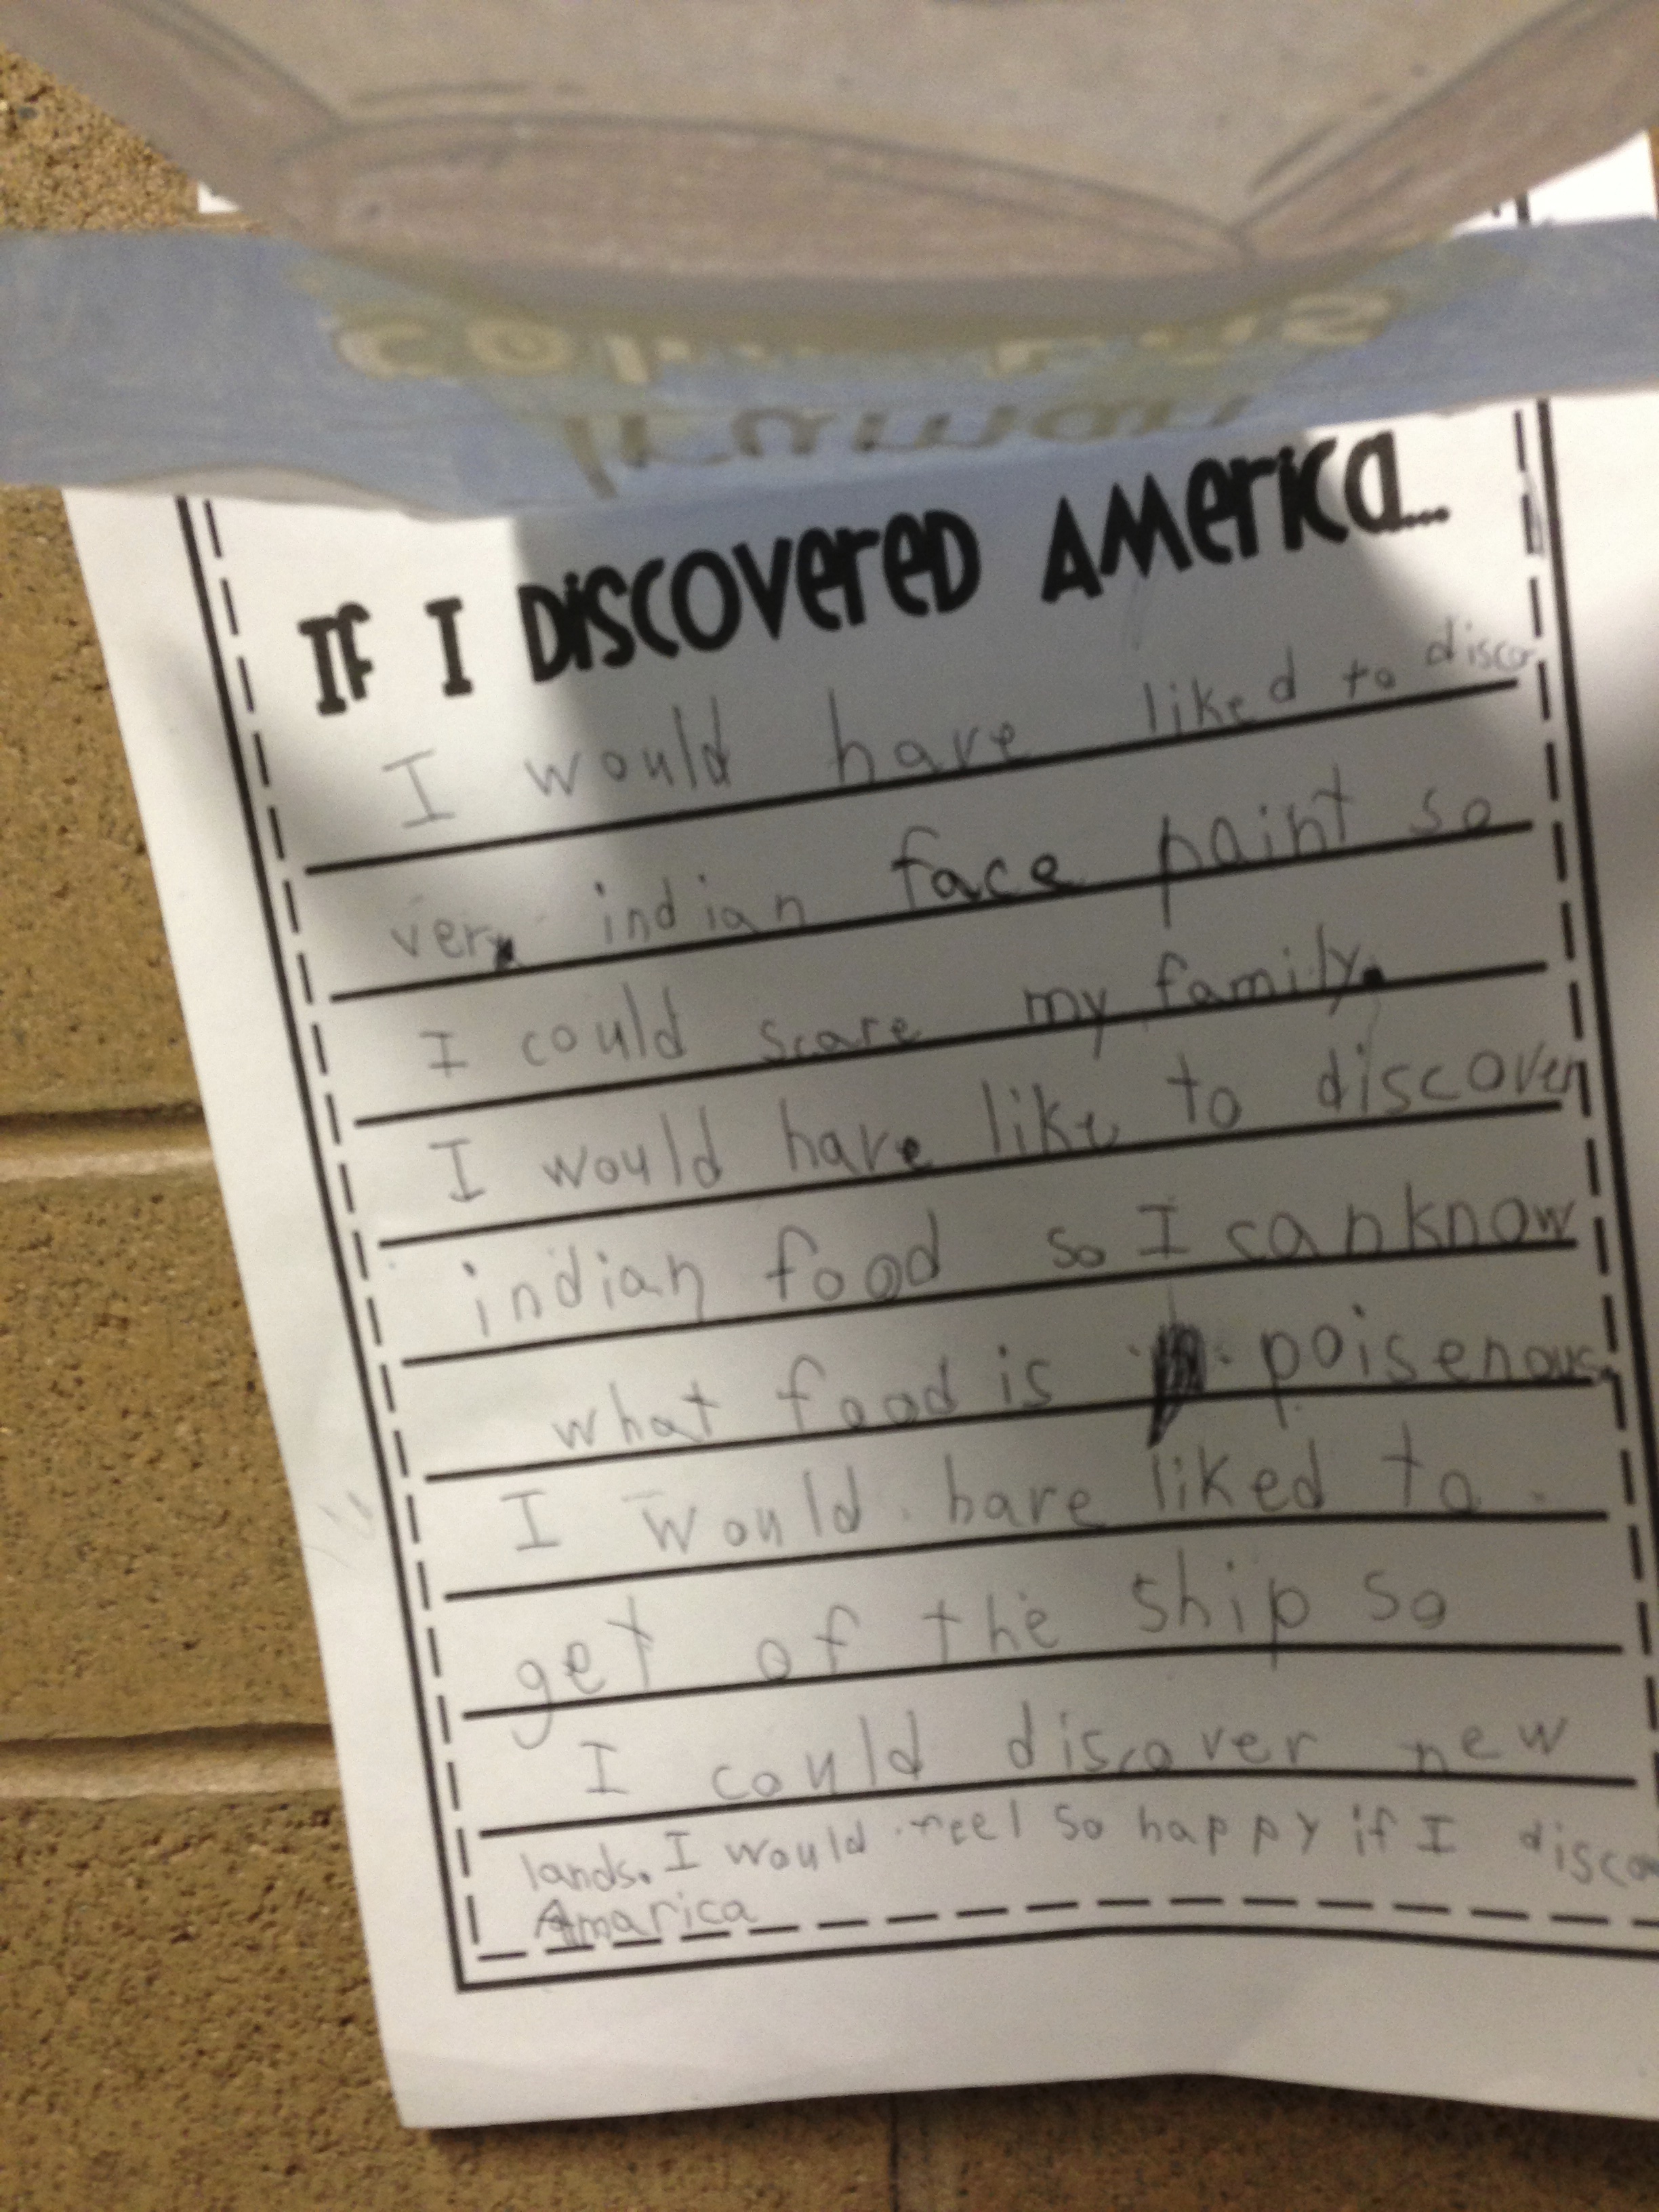 IF I DISCOVERED AMERICA...
I would have liked to disco
very indian face paint so
I could scare my family.
I would have like to discover
indian food so I can know
what food is poisenous.
I would have liked to
get of the ship so
I could discover new
lands. I would feel so happy if I disco
Amarica